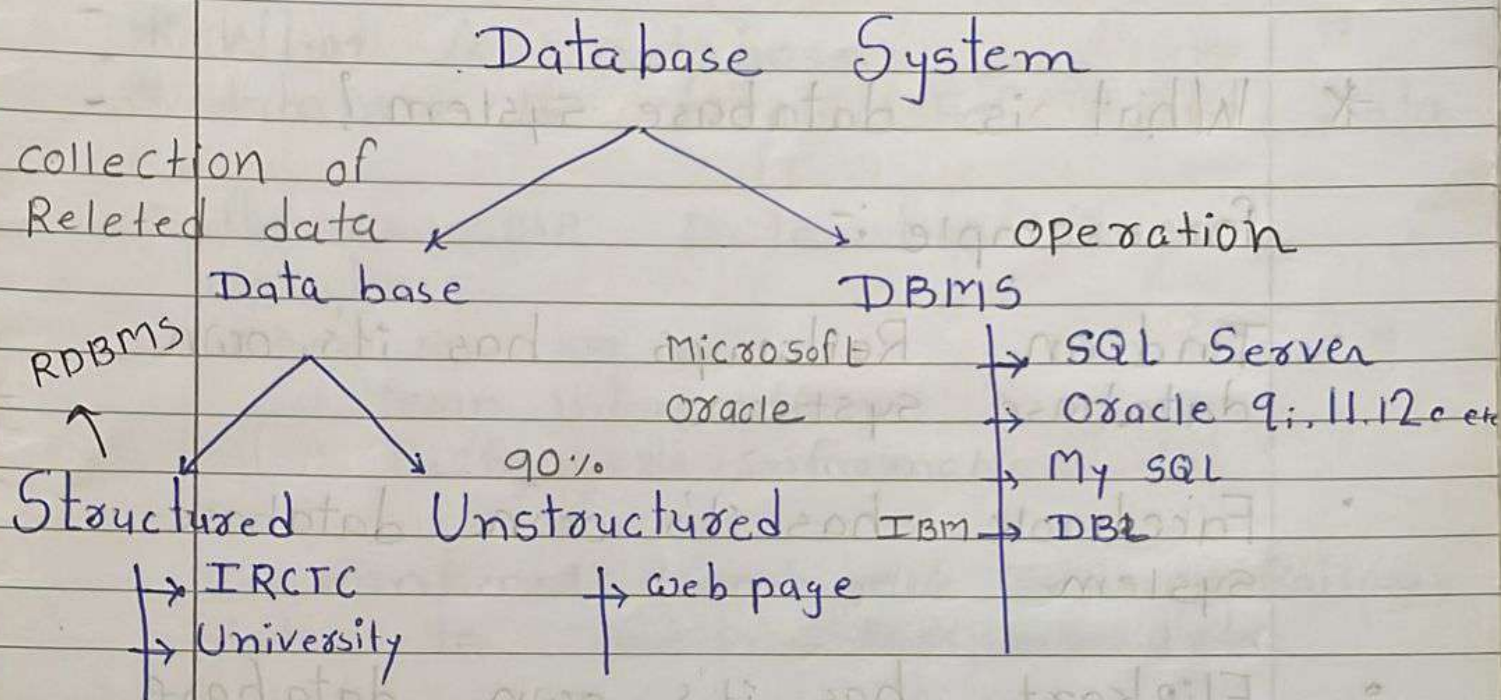 Database System
collection of
Releted data
operation
Data base
DBMS
RDBMS
Microsoft
SQL Server
Oracle
Oracle 9i, 11.12c etc
90%
My SQL
Structured
Unstructured
IBM
DB2
IRCTC
web page
University